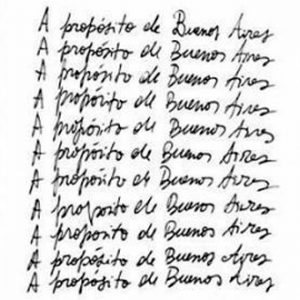 A propósito de Buenos Aires
A propósito de Buenos Aires
A propósito de Buenos Aires
A propósito de Buenos Aires
A propósito de Buenos Aires
A propósito de Buenos Aires
A propósito de Buenos Aires
A proposito de Buenos Aires
A proposito de Buenos Aires
A propósito de Buenos Aires
A propósito de Buenos Aires